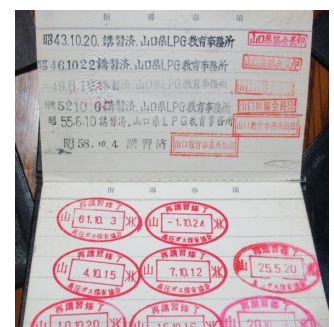 指 導 事 項
昭43.10.20. 講習済. 山口県LPG教育事務所 山口県協会長印
昭46.10.22 講習済. 山口県LPG教育事務所
講習済. 山口県LPG教育事務所
昭52.10.6 講習済. 山口県LPG教育事務所 山口県協会長印
昭55.6.10 講習済. 山口県LPG教育事務所 山口教育事務所長印
昭58.10.4 講習済 山口教育事務所長印
指 導 事 項
再講習修了
山 61.10.3
高圧ガス保安協会
再講習修了
山 -1.10.24
高圧ガス保安協会
再講習修了
山 4.10.15
高圧ガス保安協会
再講習修了
山 7.10.12
高圧ガス保安協会
再講習修了
山 25.5.20
高圧ガス保安協会
再講習修了
山 10.10.20
再講習修了
山
再講習修了
山